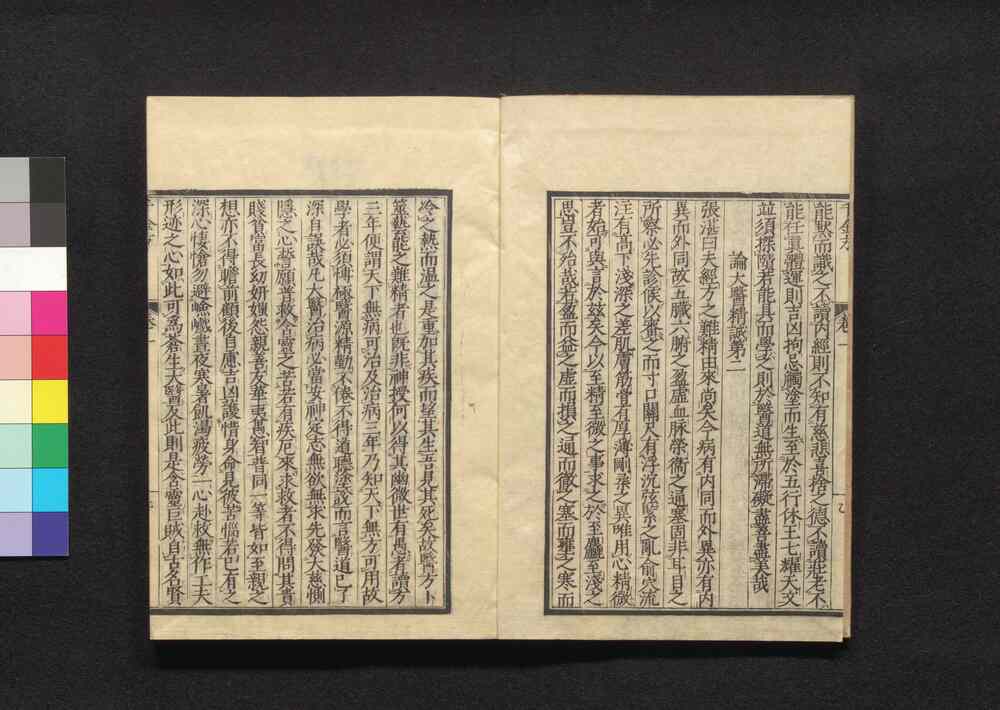 能默而識之不讀內經則不知有慈悲喜捨之德不讀莊老不
能任真體運則吉凶拘忌觸塗而生至於五行休王七耀天文
並須探賾若能具而學之則於醫道無所滯礙盡善盡美哉
論大醫精誠第二
張湛曰夫經方之難精由來尚矣今病有內同而外異亦有內
異而外同故五臟六腑之盈虛血脉榮衛之通塞固非耳目之
所察必先診候以審之而寸口關尺有浮沉弦緊之亂俞穴流
注有高下淺深之差肌膚筋骨有厚薄剛柔之異唯用心精微
者始可與言於茲矣今以至精至微之事求之於至麤至淺之
思豈不殆哉若盈而益之虛而損之通而徹之塞而壅之寒而
冷之熱而溫之是重加其疾而望其生吾見其死矣故醫方卜
筮藝能之難精者也既非神授何以得其幽微世有愚者讀方
三年便謂天下無病可治及治病三年乃知天下無方可用故
學者必須博極醫源精勤不倦不得道聽塗說而言醫道已了
深自誤哉凡大醫治病必當安神定志無欲無求先發大慈惻
隱之心誓願普救含靈之苦若有疾厄來求救者不得問其貴
賤貧富長幼妍媸怨親善友華夷愚智普同一等皆如至親之
想亦不得瞻前顧後自慮吉凶護惜身命見彼苦惱若己有之
深心悽愴勿避嶮巇晝夜寒暑飢渴疲勞一心赴救無作工夫
形迹之心如此可為蒼生大醫反此則是含靈巨賊自古名賢